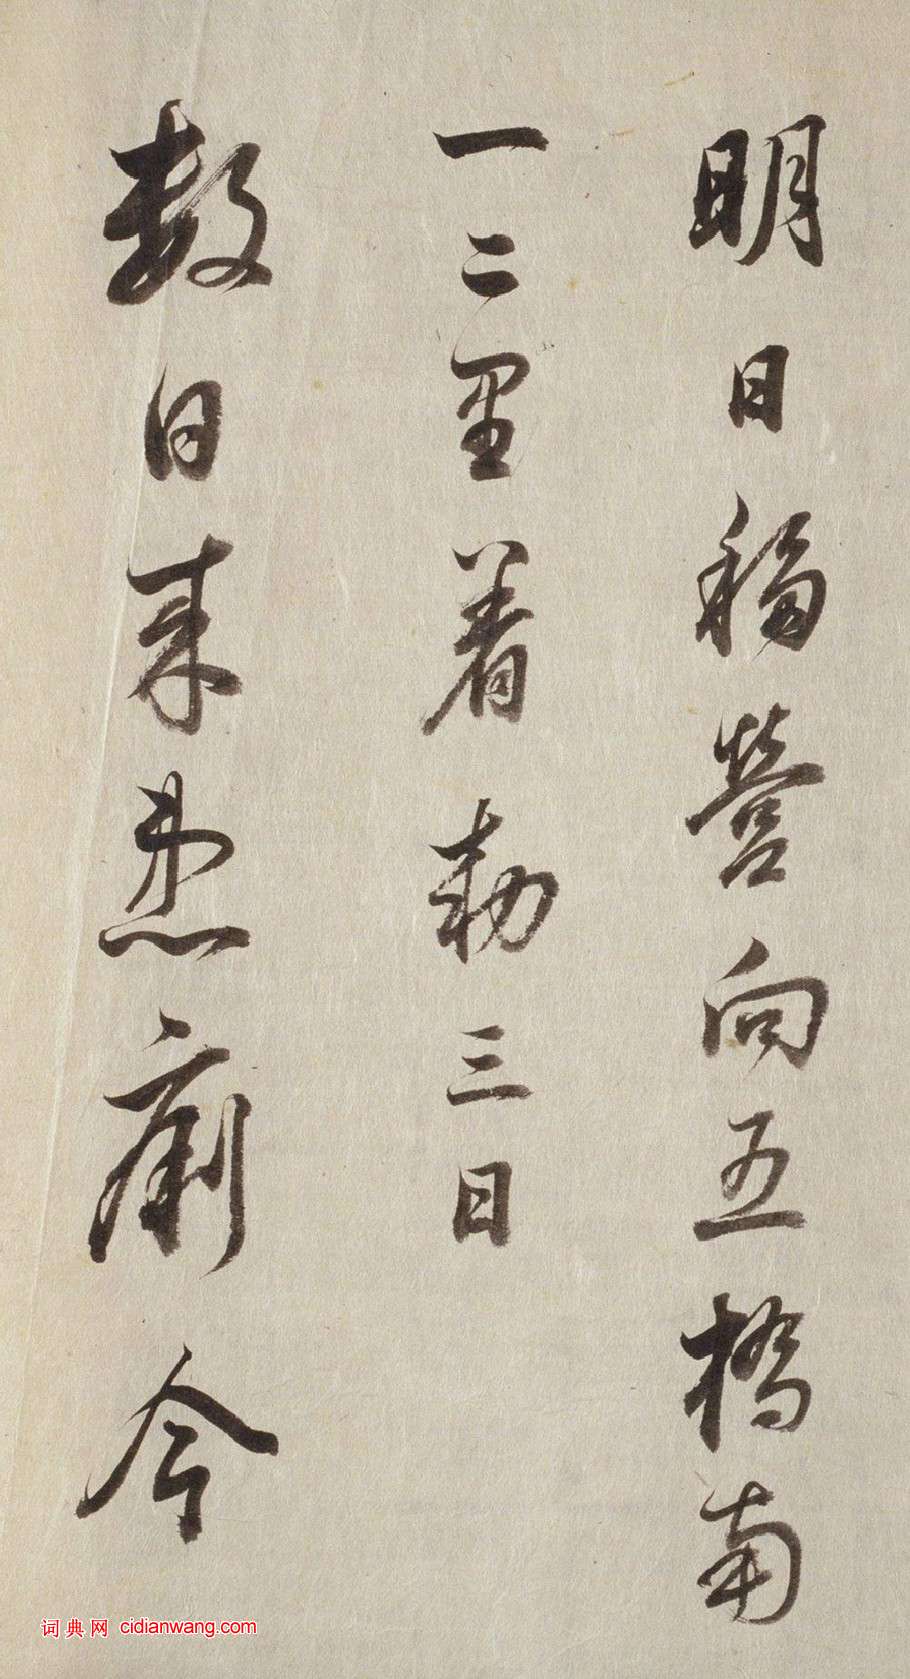 明日移營向五橋南
一二里着勅三日
數日来患痢今
词典网 cidianwang.com